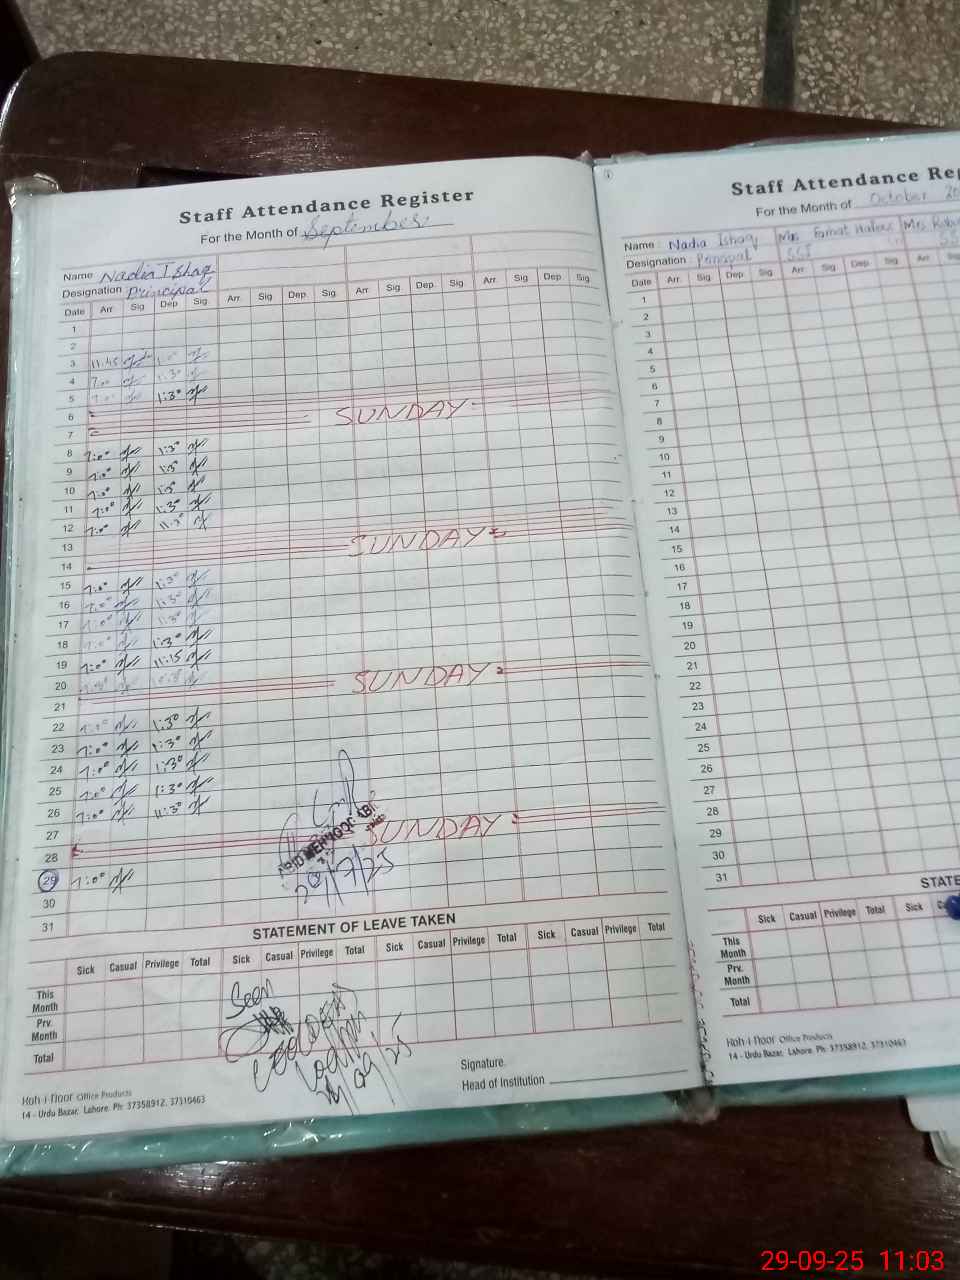 Staff Attendance Register
For the Month of September
Name Nadia Ishaq
Designation Principal
Date Arr. Sig. Dep. Sig. Arr. Sig. Dep. Sig. Arr. Sig. Dep. Sig. Arr. Sig. Dep. Sig.
1
2
3 11.45
4 7:00 1:30
5 7:00 1:30
6 SUNDAY
7
8 7:00 1:30
9 7:00 1:30
10 7:00 1:30
11 7:00 1:30
12 7:00 11:30
13 SUNDAY
14
15 7:00 1:30
16 7:00 1:30
17 7:00 1:30
18 7:00 1:30
19 7:00 11:15
20 SUNDAY
21
22 7:00 1:30
23 7:00 1:30
24 7:00 1:30
25 7:00 1:30
26 7:00 11:30
27 SUNDAY
28
29 7:00
30
31
STATEMENT OF LEAVE TAKEN
Sick Casual Privilege Total Sick Casual Privilege Total Sick Casual Privilege Total Sick Casual Privilege Total
This Month
Prv. Month
Total
Seen
Signature.
Head of Institution
Koh-i-Noor Office Products
14 - Urdu Bazar, Lahore. Ph: 37358912, 37310463
Staff Attendance Reg
For the Month of October 20
Name : Nadia Ishaq Mrs Mrs
Designation : Principal SST
Date Arr. Sig. Dep. Sig. Arr. Sig. Dep. Sig. Arr.
1
2
3
4
5
6
7
8
9
10
11
12
13
14
15
16
17
18
19
20
21
22
23
24
25
26
27
28
29
30
31
STATE
Sick Casual Privilege Total Sick
This Month
Prv. Month
Total
Koh-i-Noor Office Products
14 - Urdu Bazar, Lahore. Ph: 37358912, 37310463
29-09-25 11:03